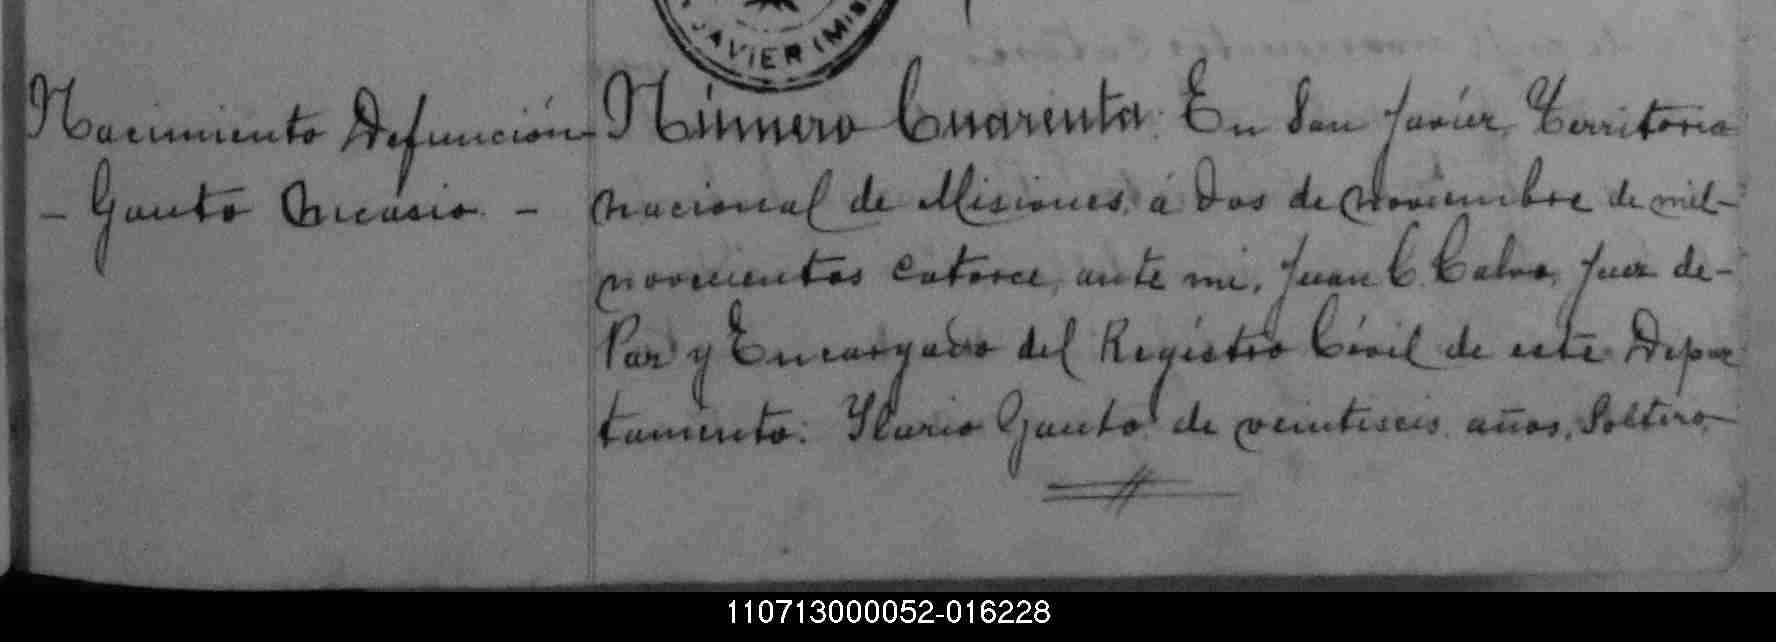 JAVIER (MIS
Nacimiento Defunción
- Gauto Nicasio. -
Número Cuarenta: En San Javier, Territorio
nacional de Misiones, á dos de noviembre de mil-
novecientos catorce, ante mi, Juan C. Calvo, Juez de-
Paz y Encargado del Registro Civil de este Depar
tamento: Ilario Gauto de veintiseis años, Soltero,-
110713000052-016228